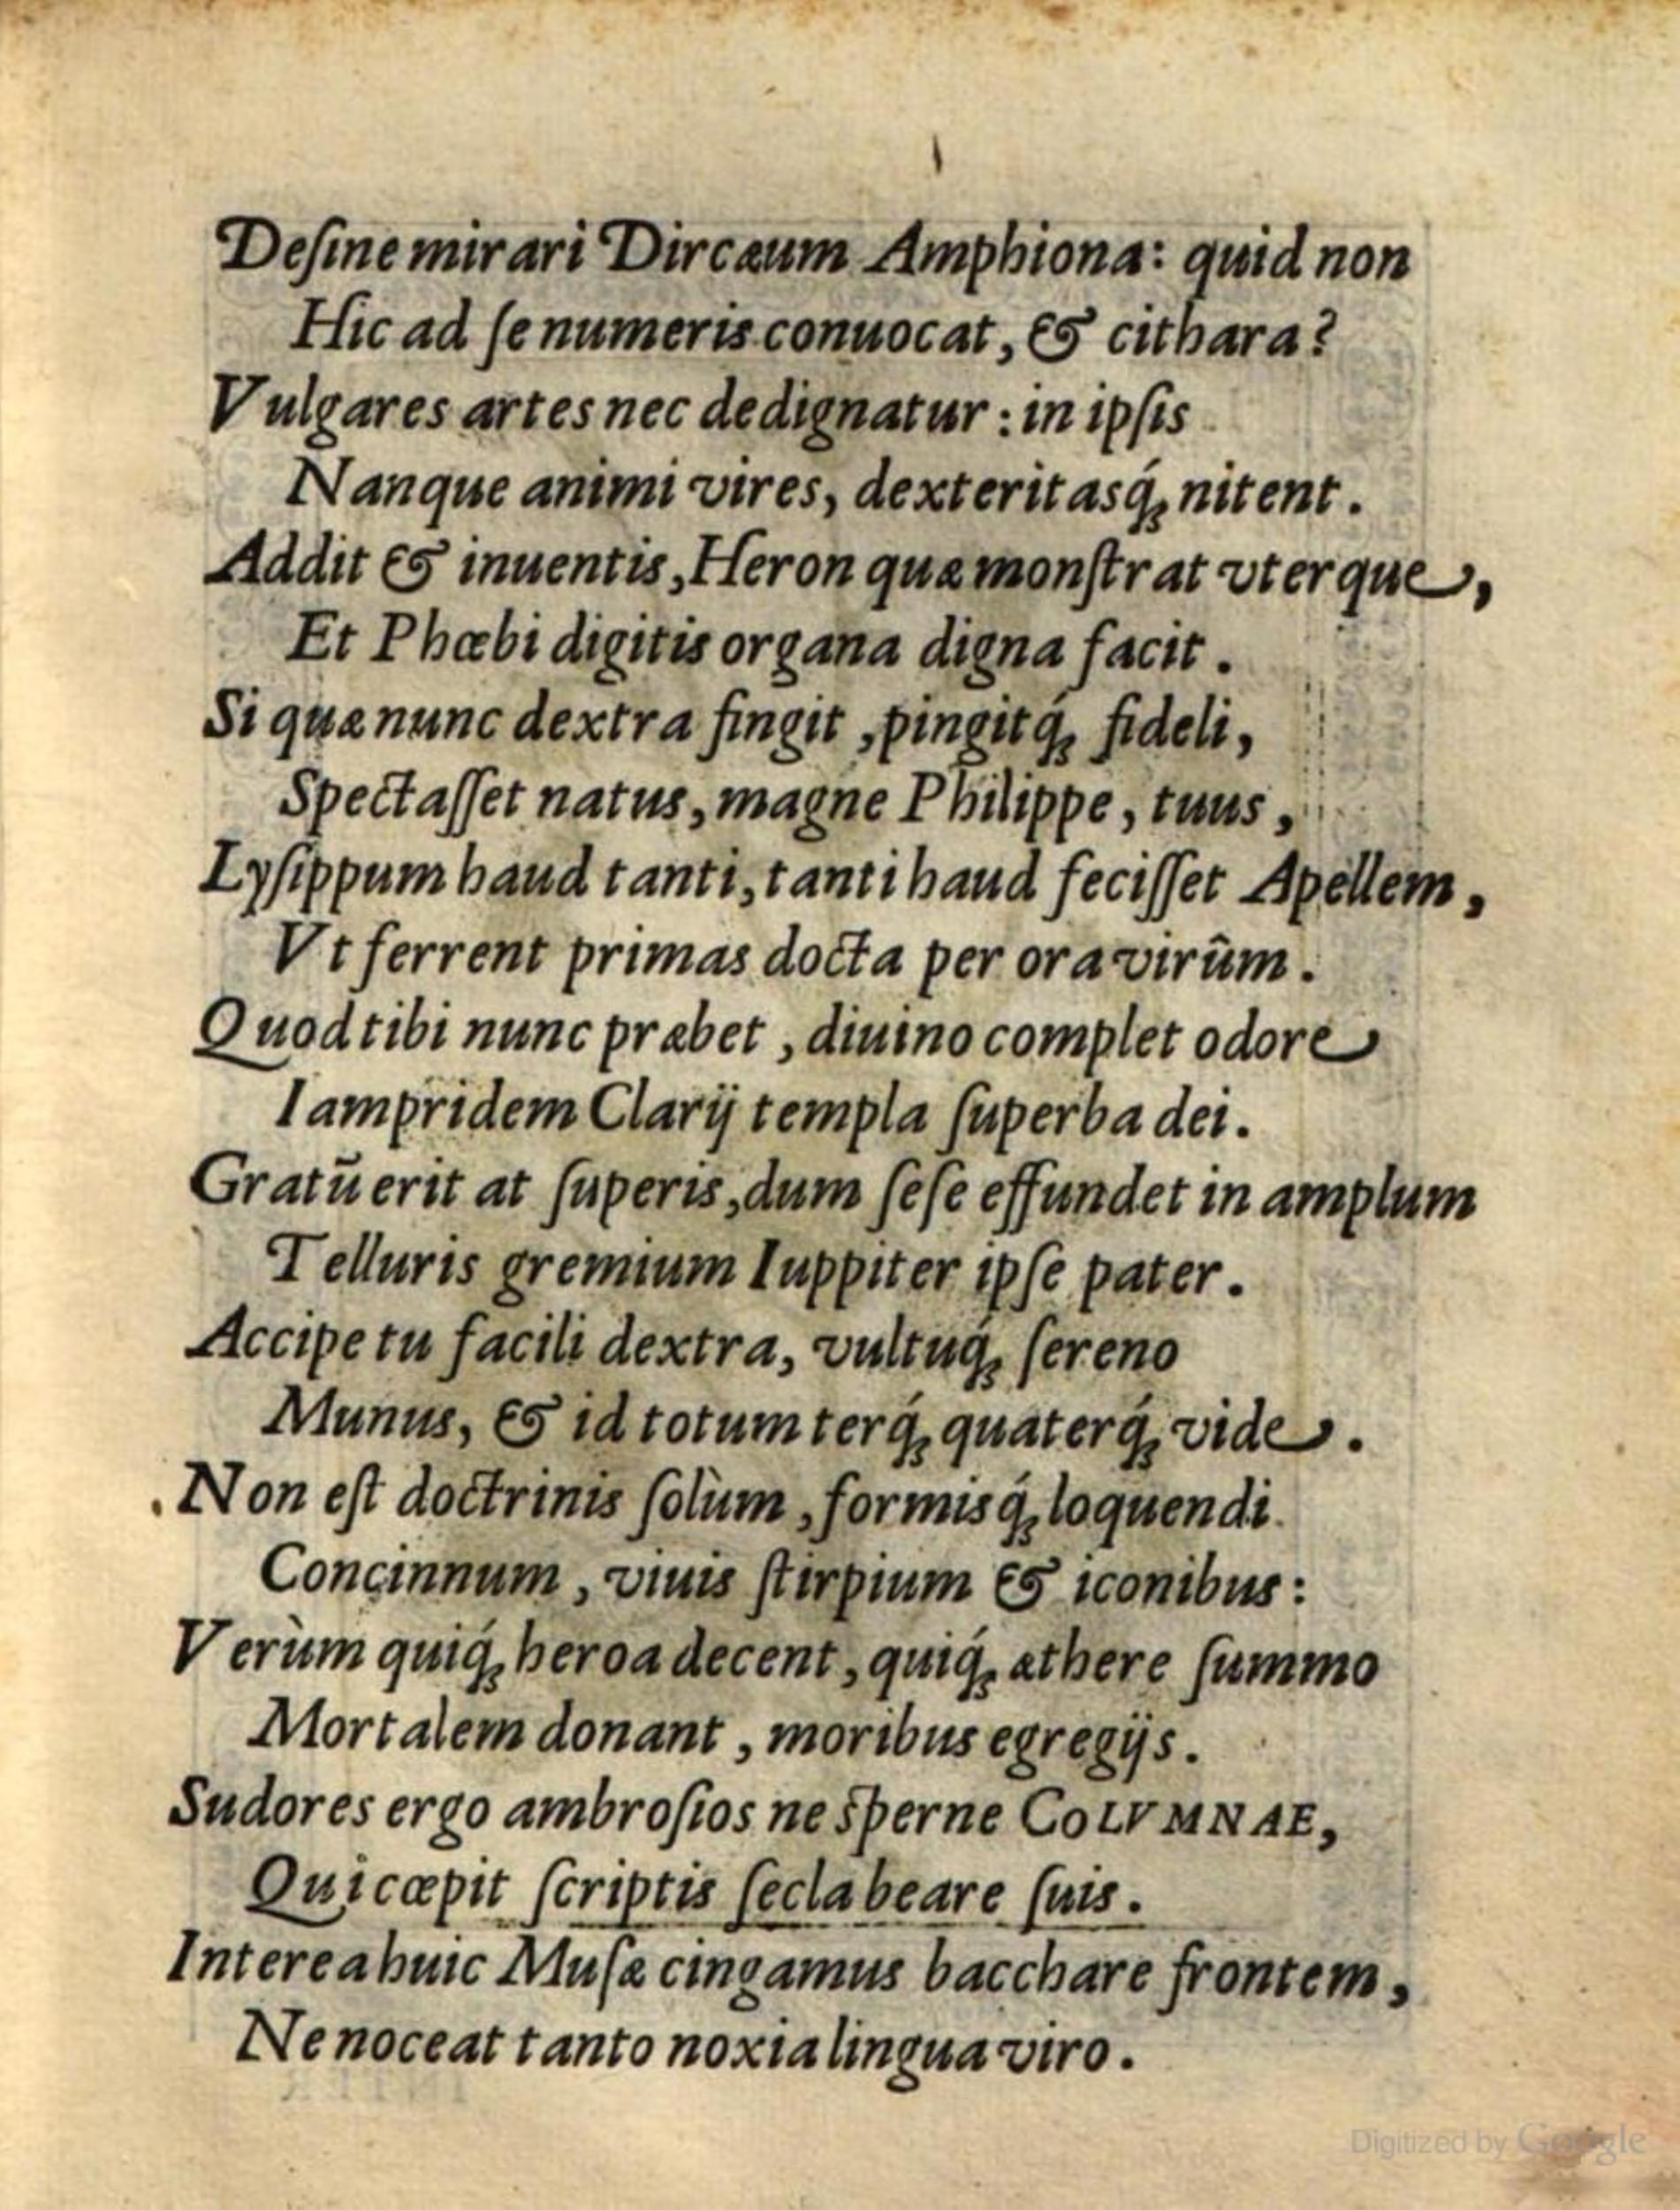 Deſine mirari Dircæum Amphiona: quid non
Hic ad ſe numeris conuocat, & cithara?
Vulgares artes nec dedignatur: in ipſis
Nanque animi vires, dexteritasq́; nitent.
Addit & inuentis, Heron quæ monſtrat vterque,
Et Phœbi digitis organa digna facit.
Si quæ nunc dextra fingit, pingitq́; fideli,
Spectaſſet natus, magne Philippe, tuus,
Lyſippum haud tanti, tanti haud feciſſet Apellem,
Vt ferrent primas docta per ora virûm.
Quod tibi nunc præbet, diuino complet odore
Iampridem Clarij templa ſuperba dei.
Gratũ erit at ſuperis, dum ſeſe effundet in amplum
Telluris gremium Iuppiter ipſe pater.
Accipe tu facili dextra, vultuq́; ſereno
Munus, & id totum terq́; quaterq́; vide.
Non eſt doctrinis ſolùm, formisq́; loquendi
Concinnum, viuis ſtirpium & iconibus:
Verùm quiq́; heroa decent, quiq́; æthere ſummo
Mortalem donant, moribus egregijs.
Sudores ergo ambroſios ne ſperne COLVMNAE,
Qui cœpit ſcriptis ſecla beare ſuis.
Interea huic Muſæ cingamus bacchare frontem,
Ne noceat tanto noxia lingua viro.
Digitized by Google